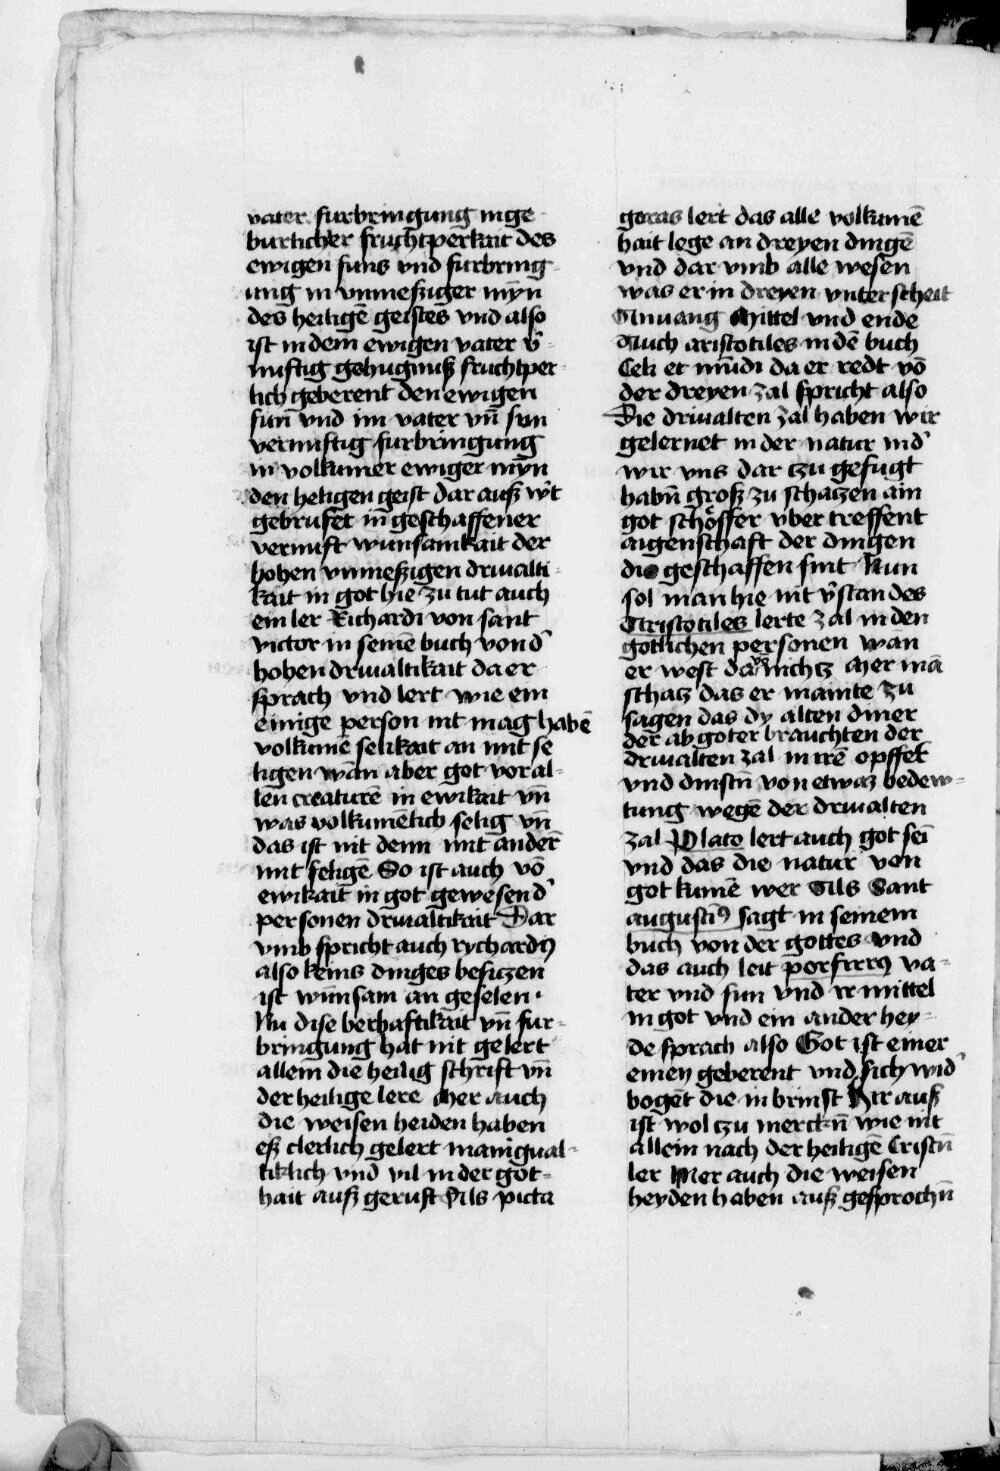 vater furbringung in ge
burlicher fruchtperkait des
ewigen suns vnd furbring-
ung in vnmeßiger myn̄
des heiligē geistes vnd also
ist in dem ewigen vater v̓-
nuftig gehugnuß fruchtper-
lich geberent den ewigen
sun̄ vnd im vater vn̄ sun
vernuftig furbringung
in volkumer ewiger myn̄
den heiligen geist dar auß w̓t
gebrufet in geschaffener
vernuft wunsamkait der
hohen vnmeßigen driualti-
kait in got hie zu tut auch
ein ler Richardi von sant
victor in seinē buch von d̓
hohen driualtikait da er
sprach vnd lert wie ein
einige person nit mag habē
volkumē selikait an mit se
ligen wan̄ aber got vor al-
len creaturē in ewikait vn̄
was volkumēlich selig vn̄
das ist nit denn mit anderē
mit seligē So ist auch vō
ewikait in got gewesen d̓
personen driualtikait Dar
vmb spricht auch rychardꝰ
also keins dinges besiczen
ist wunsam an geselen.
Nu dise berhaftikait vn̄ fur-
bringung hat nit gelert
allein die heilig schrift vn̄
der heilige lere Mer auch
die weisen heiden haben
eß clerlich gelert manigual-
tiklich vnd vil in der got-
hait auß geruft Als picta
goras lert das alle volkumē
hait lege an dreyen dingē
vnd dar vmb alle wesen
was er in dreyen vnterscheit
Anuang Mittel vnd ende
Auch aristotiles in dē buch
Celi et mūdi da er redt vō
der dreyen zal spricht also
Die driualten zal haben wir
gelernet in der natur in d̓
wir vns dar czu gefugt
habn̄ groß zu schaczen ain
got schöffer vber treffent
aigenschaft der dingen
die geschaffen sint Nun
sol man hie nit v̓stan des
Aristotiles lerte zal in den
gotlichen personen wan
er west da von nichtz Mer mā
schatz das er mainte zu
sagen das dy alten diner
der abgoter brauchten der
driualten zal in irē opffer
vnd dinstn̄ von etwaz bedew-
tung wegē der driualten
zal Plato lert auch got sei
vnd das die natur von
got kumē wer Als Sant
augustīꝰ sagt in seinem
buch von der gottes vnd
das auch leit porfirꝰ va-
ter vnd sun vnd ir mittel
in got vnd ein ander hey-
de sprach also Got ist einer
einen geberent vnd sich wid̓
bogēt die in brinst Hir auß
ist wol czu merckn̄ wie nit
allein nach der heiligē Cristn̄
ler Mer auch die weisen
heyden haben auß gesprochn̄